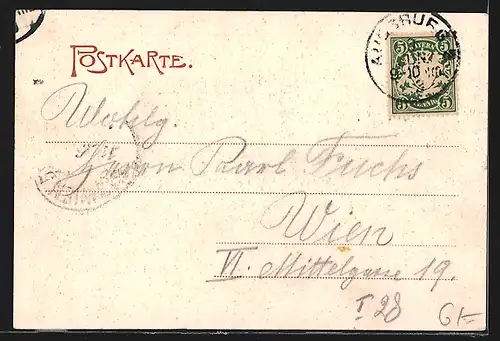 POSTKARTE.
AUGSBURG
5 BAYERN 5
10
5 PFENNIG 5
Wohlg.
Herrn Karl Fuchs
Wien
VI. Mittelgasse 19.
I 28
6.-